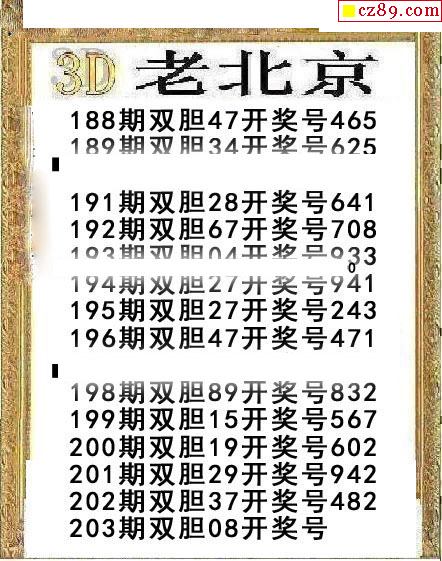 cz89.com
3D 老北京
188期双胆47开奖号465
189期双胆34开奖号625
191期双胆28开奖号641
192期双胆67开奖号708
193期双胆04开奖号933
0
194期双胆27开奖号941
195期双胆27开奖号243
196期双胆47开奖号471
198期双胆89开奖号832
199期双胆15开奖号567
200期双胆19开奖号602
201期双胆29开奖号942
202期双胆37开奖号482
203期双胆08开奖号